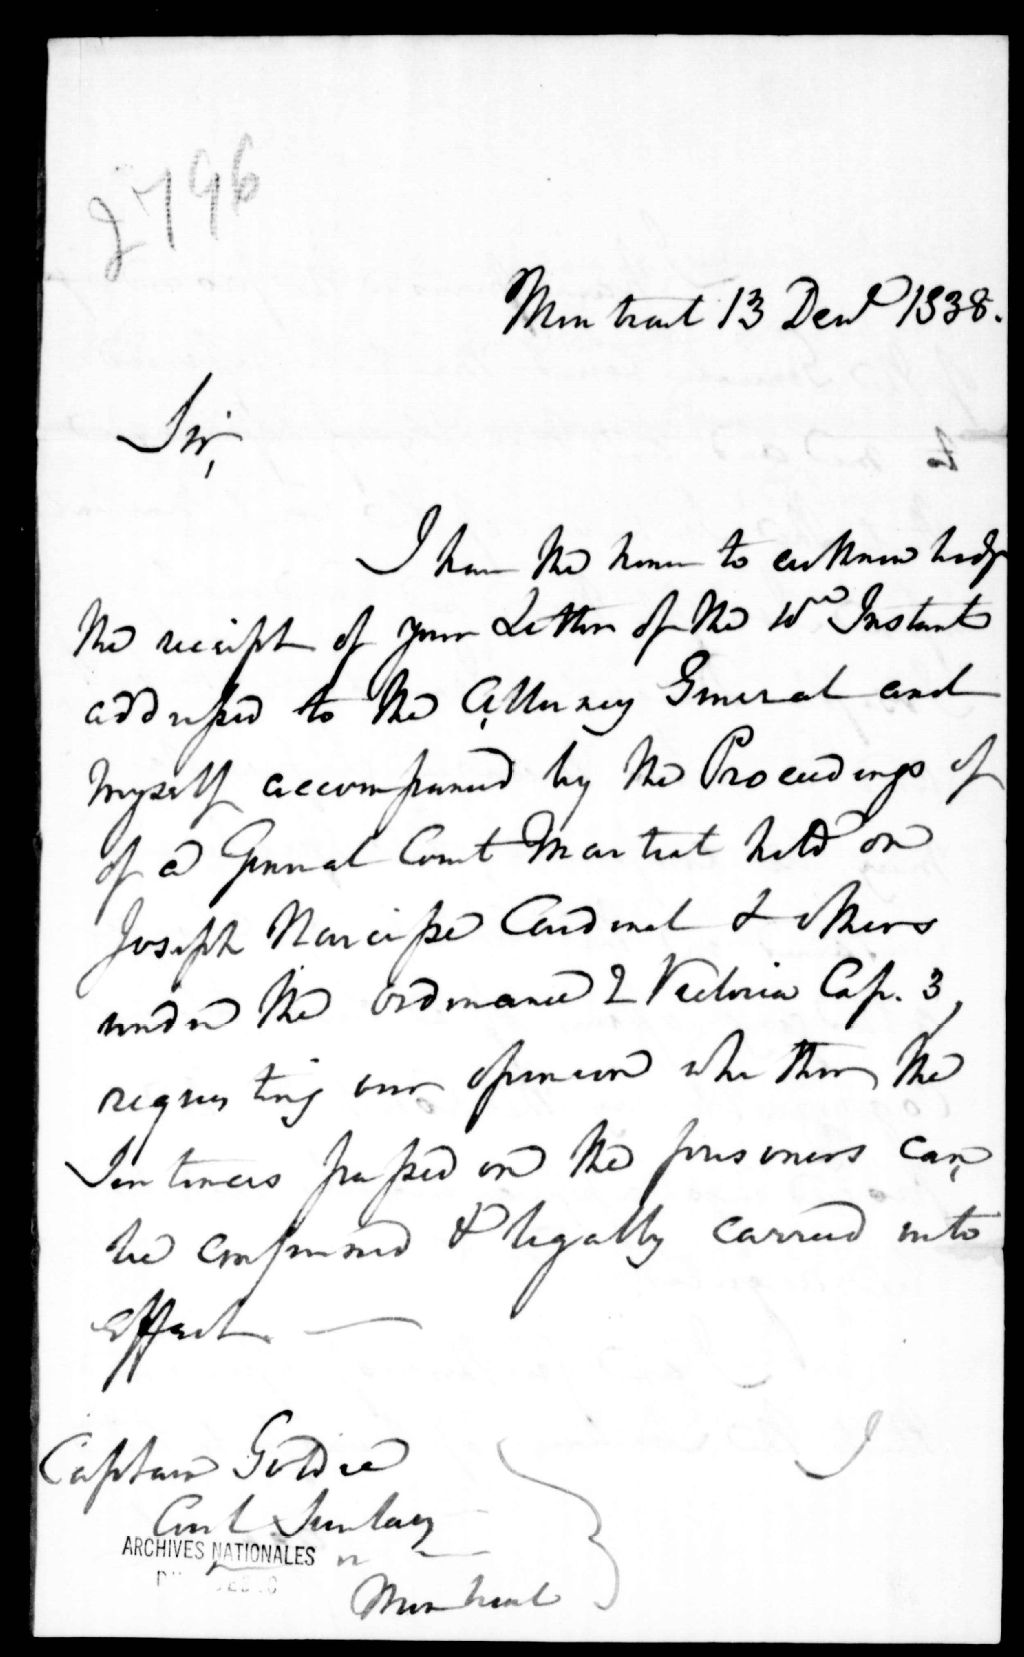 2796
Montreal 13 Decr 1838.
Sir,
I have the honor to acknowledge
the receipt of your Letter of the 10th Instant
addressed to the Attorney General and
myself accompanied by the Proceedings of
of a General Court Martial held on
Joseph Narcisse Cardinal & others
under the ordinance 2 Victoria Cap. 3,
requesting our opinion whether the
Sentences passed on the prisoners can
be confirmed & legally carried into
effect. —
I
Captain Goldie
Civil Secretary
Montreal
ARCHIVES NATIONALES